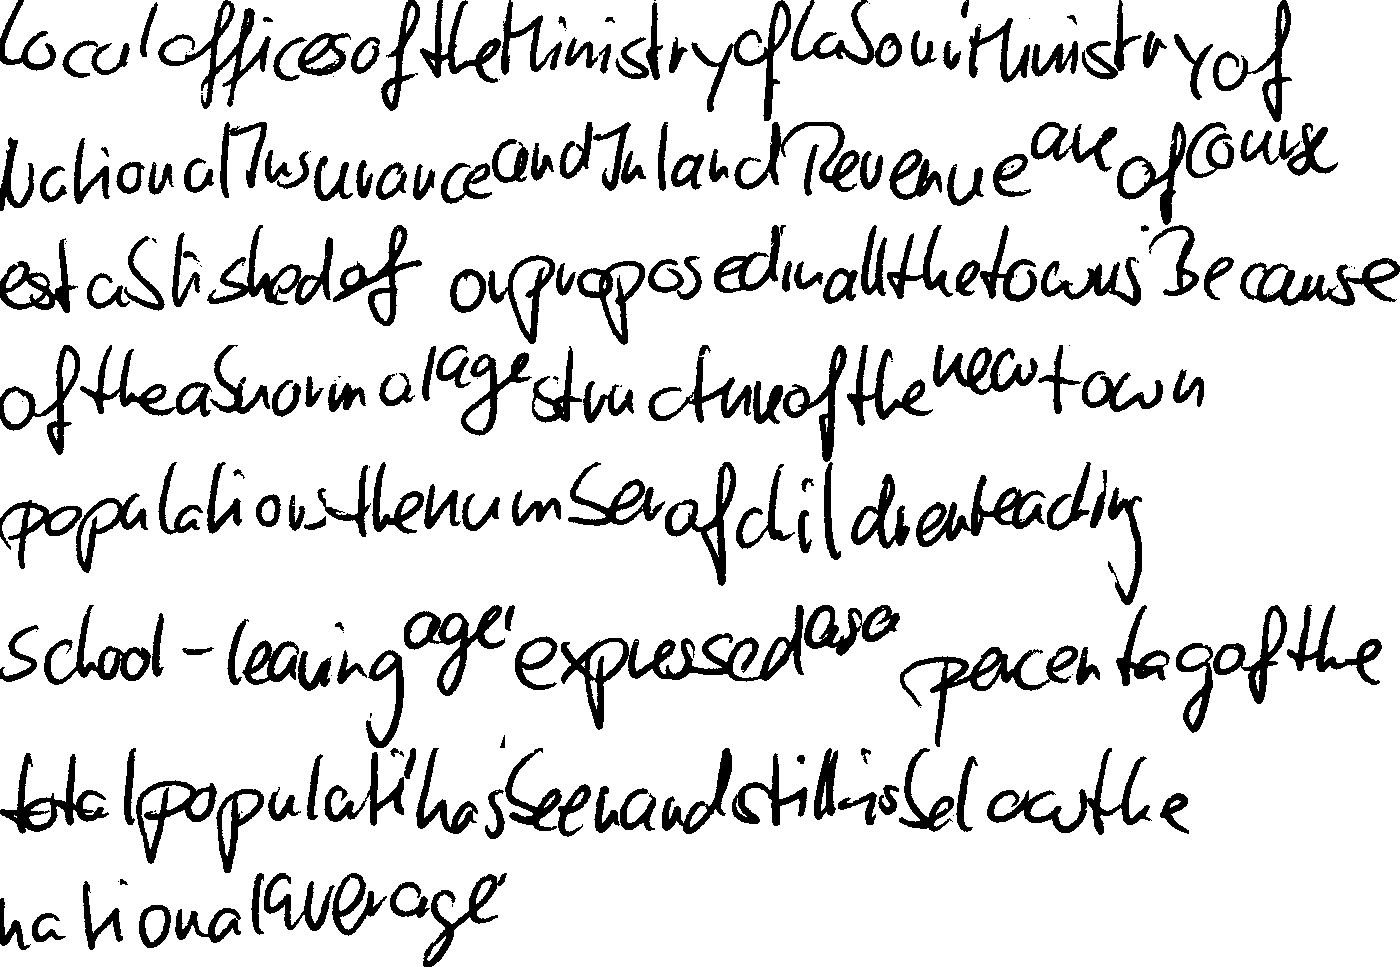 Local offices of the Ministry of Labour, Ministry of
National Insurance and Inland Revenue are of course
established of or proposed in all the towns. Because
of the abnormal age structure of the new town
populations the number of children reading
school-leaving age, expressed as a percentag of the
total populati, has been and still is below the
national average.